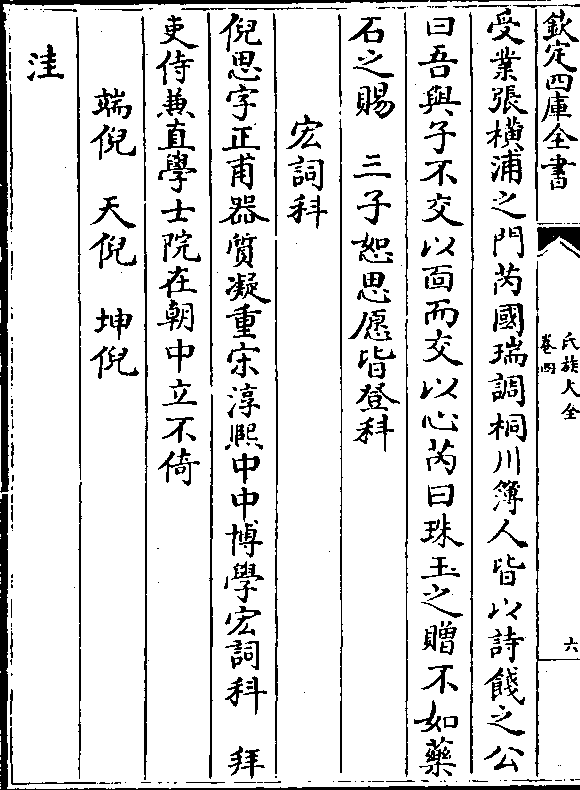 欽定四庫全書
氏族大全
卷四
六
受業張橫浦之門芮國瑞調桐川簿人皆以詩餞之公
曰吾與子不交以面而交以心芮曰珠玉之贈不如藥
石之賜　三子恕思愿皆登科
宏詞科
倪思字正甫器質凝重宋淳熙中中博學宏詞科　拜
吏侍兼直學士院在朝中立不倚
端倪　天倪　坤倪
洼